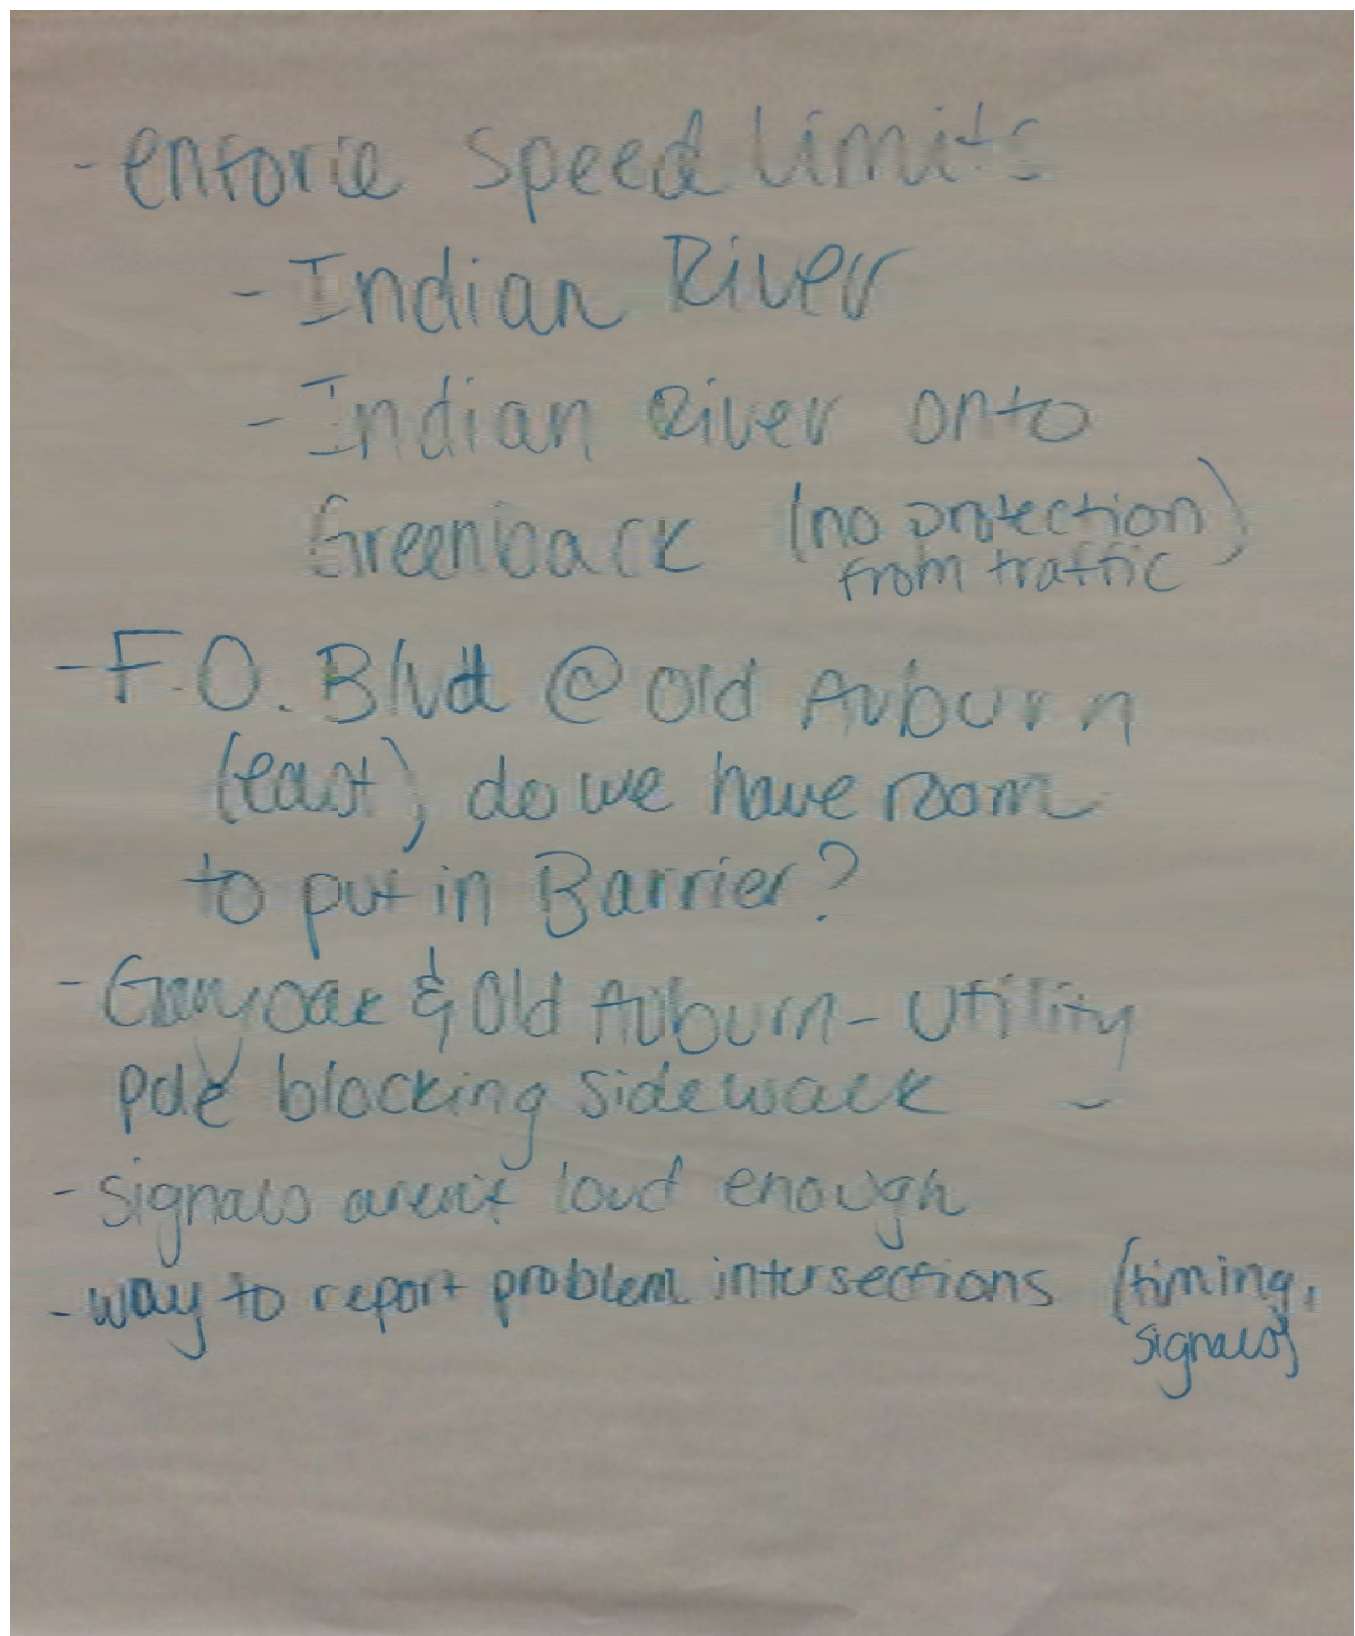 - enforce speed limits
- Indian River
- Indian River onto
Greenback (no protection
from traffic)
- F.O. Blvd @ Old Auburn
(east), do we have room
to put in Barrier?
- Garyoak & Old Auburn - Utility
pole blocking sidewalk
- signals aren't loud enough
- way to report problem intersections (timing,
signals)